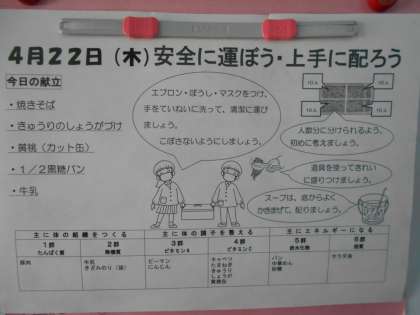 4月22日(木)安全に運ぼう・上手に配ろう
今日の献立
・焼きそば
・きゅうりのしょうがづけ
・黄桃(カット缶)
・1/2黒糖パン
・牛乳
エプロン・ぼうし・マスクをつけ、
手をていねいに洗って、清潔に運び
ましょう。
こぼさないようにしましょう。
10人 10人
10人 10人
人数分に分けられるよう、
初めに考えましょう。
道具を使ってきれい
に盛りつけましょう。
スープは、底からよく
かきまぜて、配りましょう。
主に体の組織をつくる 主に体の調子を整える 主にエネルギーになる
1群 2群 3群 4群 5群 6群
たんぱく質 無機質 ビタミンA ビタミンC 炭水化物 脂質
豚肉 牛乳 ピーマン キャベツ パン サラダ油
きざみのり(袋) にんじん たまねぎ 中華めん
きゅうり 砂糖
しょうが
黄桃缶